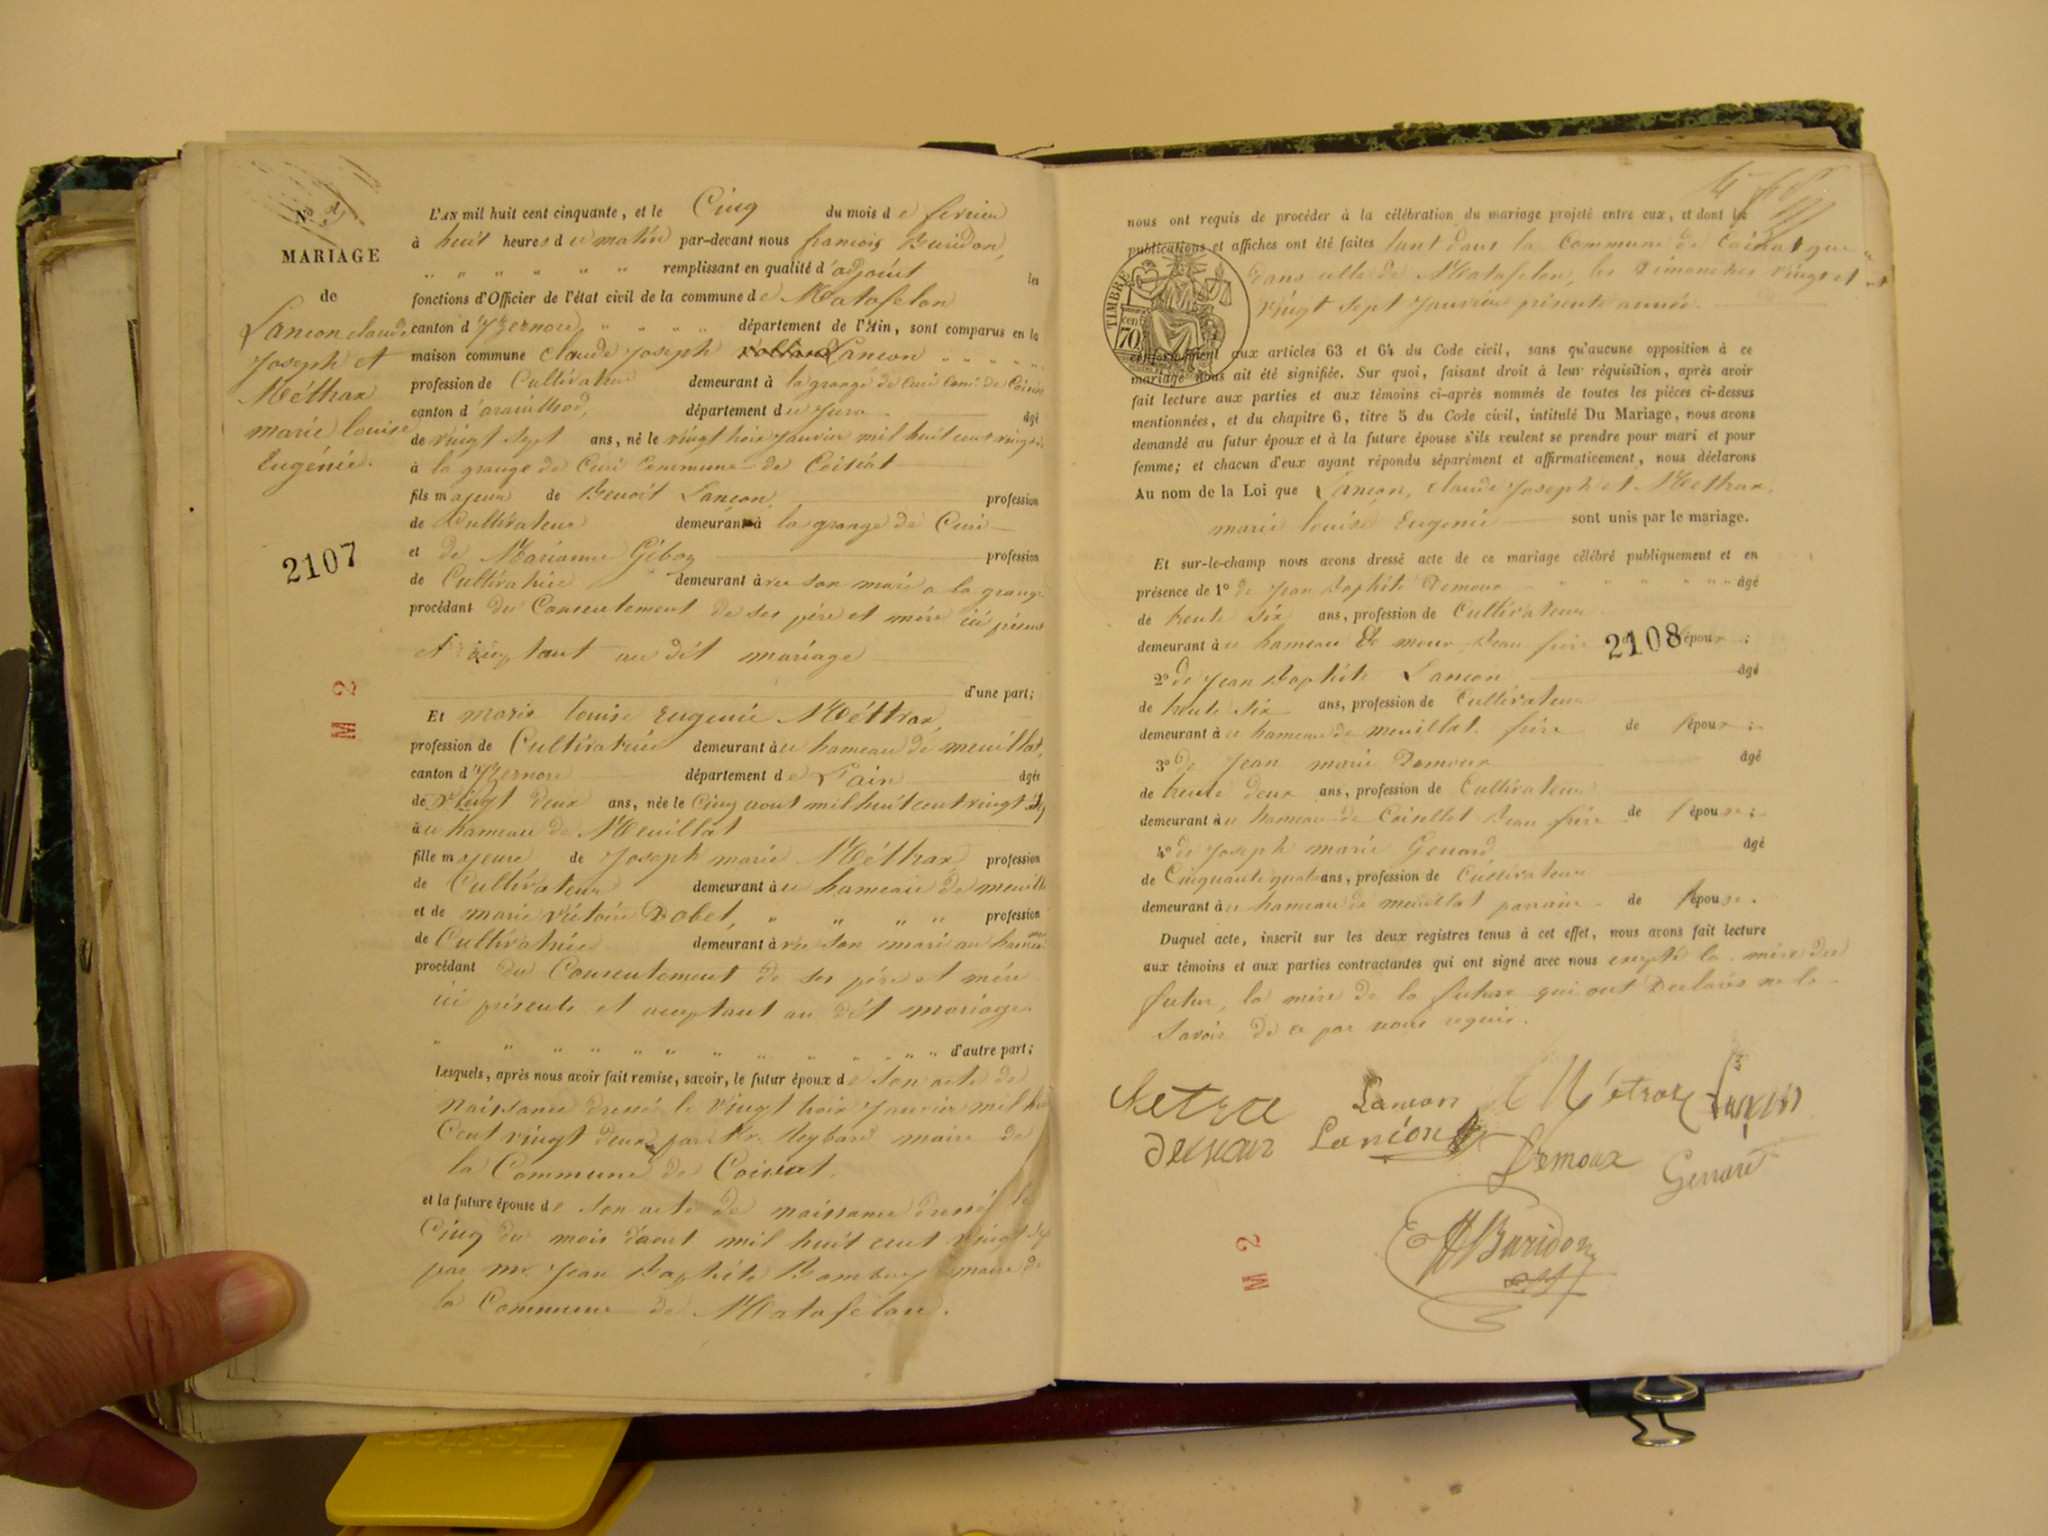 N°
MARIAGE
de
Lancon claude
Joseph et
Méthrax
marie louise
Eugénie.
2107
M 2
L'AN mil huit cent cinquante, et le Cinq du mois de fevrier
à huit heures du matin par-devant nous francois Buridon,
remplissant en qualité d'adjoint les
fonctions d'Officier de l'état civil de la commune de Matafelon
canton d'Yzernore, département de l'Ain, sont comparus en la
maison commune claude Joseph Lancon
profession de Cultivateur demeurant à la grange de Cuvi de
canton d' département du Jura âgé
de vingt sept ans, né le vingt trois Janvier mil huit cent vingt
à la grange de Cuvi Commune de Coisiat
fils majeur de Benoit Lancon, profession
de Cultivateur demeurant à la grange de Cuvi
et de Marianne profession
de Cultivatrice demeurant à son mari a la grange
procédant du Consentement de ses père et mère ici présent
et acceptant au dit mariage
d'une part;
Et marie louise Eugenie Méthrax,
profession de Cultivatrice demeurant à hameau de meuillat,
canton d'Yzernore département de l'ain âgée
de vingt deux ans, née le Cinq aout mil huit cent vingt sept
au hameau de Meuillat
fille majeure de Joseph marie Méthrax profession
de Cultivateur demeurant à hameau de
et de marie victoire Dobet, profession
de Cultivatrice demeurant à son mari au
procédant du Consentement de ses père et mère
ici présents et acceptant au dit mariage
d'autre part;
Lesquels, après nous avoir fait remise, savoir, le futur époux de son acte de
naissance dressé le vingt trois Janvier mil
Cent vingt deux par Mr. Reybard maire de
la Commune de Coisiat.
et la future épouse de son acte de naissance dressé le
Cinq du mois d'aout mil huit cent vingt sept
par mr. Jean Baptiste maire de
la Commune de Matafelon.
nous ont requis de procéder à la célébration du mariage projeté entre eux, et dont les
publications et affiches ont été faites tant dans la Commune de Coisiat que
dans celle de Matafelon, les Dimanches vingt et
vingt sept Janvier présente année.
TIMBRE
70 cen
conformément aux articles 63 et 64 du Code civil, sans qu'aucune opposition à ce
mariage nous ait été signifiée. Sur quoi, faisant droit à leur réquisition, après avoir
fait lecture aux parties et aux témoins ci-après nommés de toutes les pièces ci-dessus
mentionnées, et du chapitre 6, titre 5 du Code civil, intitulé Du Mariage, nous avons
demandé au futur époux et à la future épouse s'ils veulent se prendre pour mari et pour
femme; et chacun d'eux ayant répondu séparément et affirmativement, nous déclarons
Au nom de la Loi que Lancon, claude Joseph et Methrax,
marie louise Eugenie sont unis par le mariage.
Et sur-le-champ nous avons dressé acte de ce mariage célébré publiquement et en
présence de 1° de Jean Baptiste Demoux âgé
de trente six ans, profession de Cultivateur
demeurant à hameau de beau frère l'époux;
2108
2° de Jean Baptiste Lancon âgé
de trente six ans, profession de Cultivateur
demeurant à hameau de meuillat frère de l'époux;
3° de Jean marie Demoux âgé
de trente deux ans, profession de Cultivateur
demeurant à hameau de Coisellet Beau frère de l'épouse;
4° de Joseph marie Genard âgé
de Cinquante quatre ans, profession de Cultivateur
demeurant à hameau de meuillat parrain de l'épouse.
Duquel acte, inscrit sur les deux registres tenus à cet effet, nous avons fait lecture
aux témoins et aux parties contractantes qui ont signé avec nous excepté la mère du
futur, la mère de la future qui ont Declarés ne le
savoir de ce par nous requis.
Lancon Métrax Lançon
Lancon Demoux Genard
Buridon
M 2